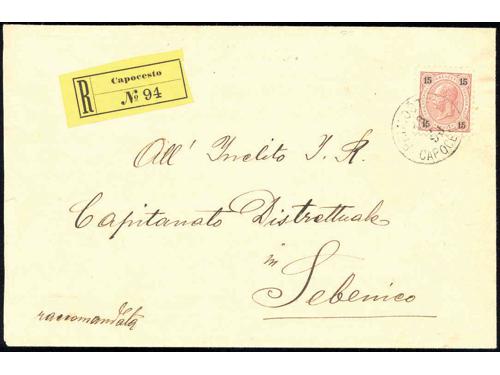 R
Capocesto
No 94
15 15
15 15
CAPOCE
All' Inclito I. R.
Capitanato Distrettuale
in
Sebenico
raccomandata